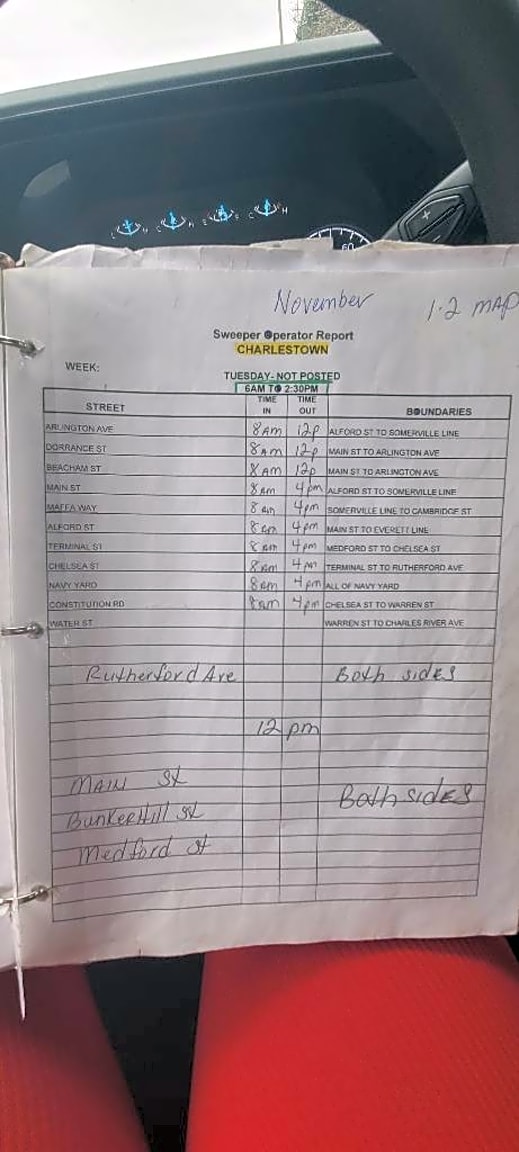 November
1·2 MAP
Sweeper Operator Report
CHARLESTOWN
WEEK:
TUESDAY- NOT POSTED
6AM TO 2:30PM
STREET TIME IN TIME OUT BOUNDARIES
ARLINGTON AVE 8AM 12p ALFORD ST TO SOMERVILLE LINE
DORRANCE ST 8AM 12p MAIN ST TO ARLINGTON AVE
BEACHAM ST 8AM 12p MAIN ST TO ARLINGTON AVE
MAIN ST 8am 4pm ALFORD ST TO SOMERVILLE LINE
MAFFA WAY 8am 4pm SOMERVILLE LINE TO CAMBRIDGE ST
ALFORD ST 8am 4pm MAIN ST TO EVERETT LINE
TERMINAL ST 8am 4pm MEDFORD ST TO CHELSEA ST
CHELSEA ST 8am 4pm TERMINAL ST TO RUTHERFORD AVE
NAVY YARD 8am 4pm ALL OF NAVY YARD
CONSTITUTION RD 8am 4pm CHELSEA ST TO WARREN ST
WATER ST WARREN ST TO CHARLES RIVER AVE
Rutherford Ave Both sides
12 pm
MAIN St
Both sides
BunkerHill St
Medford St